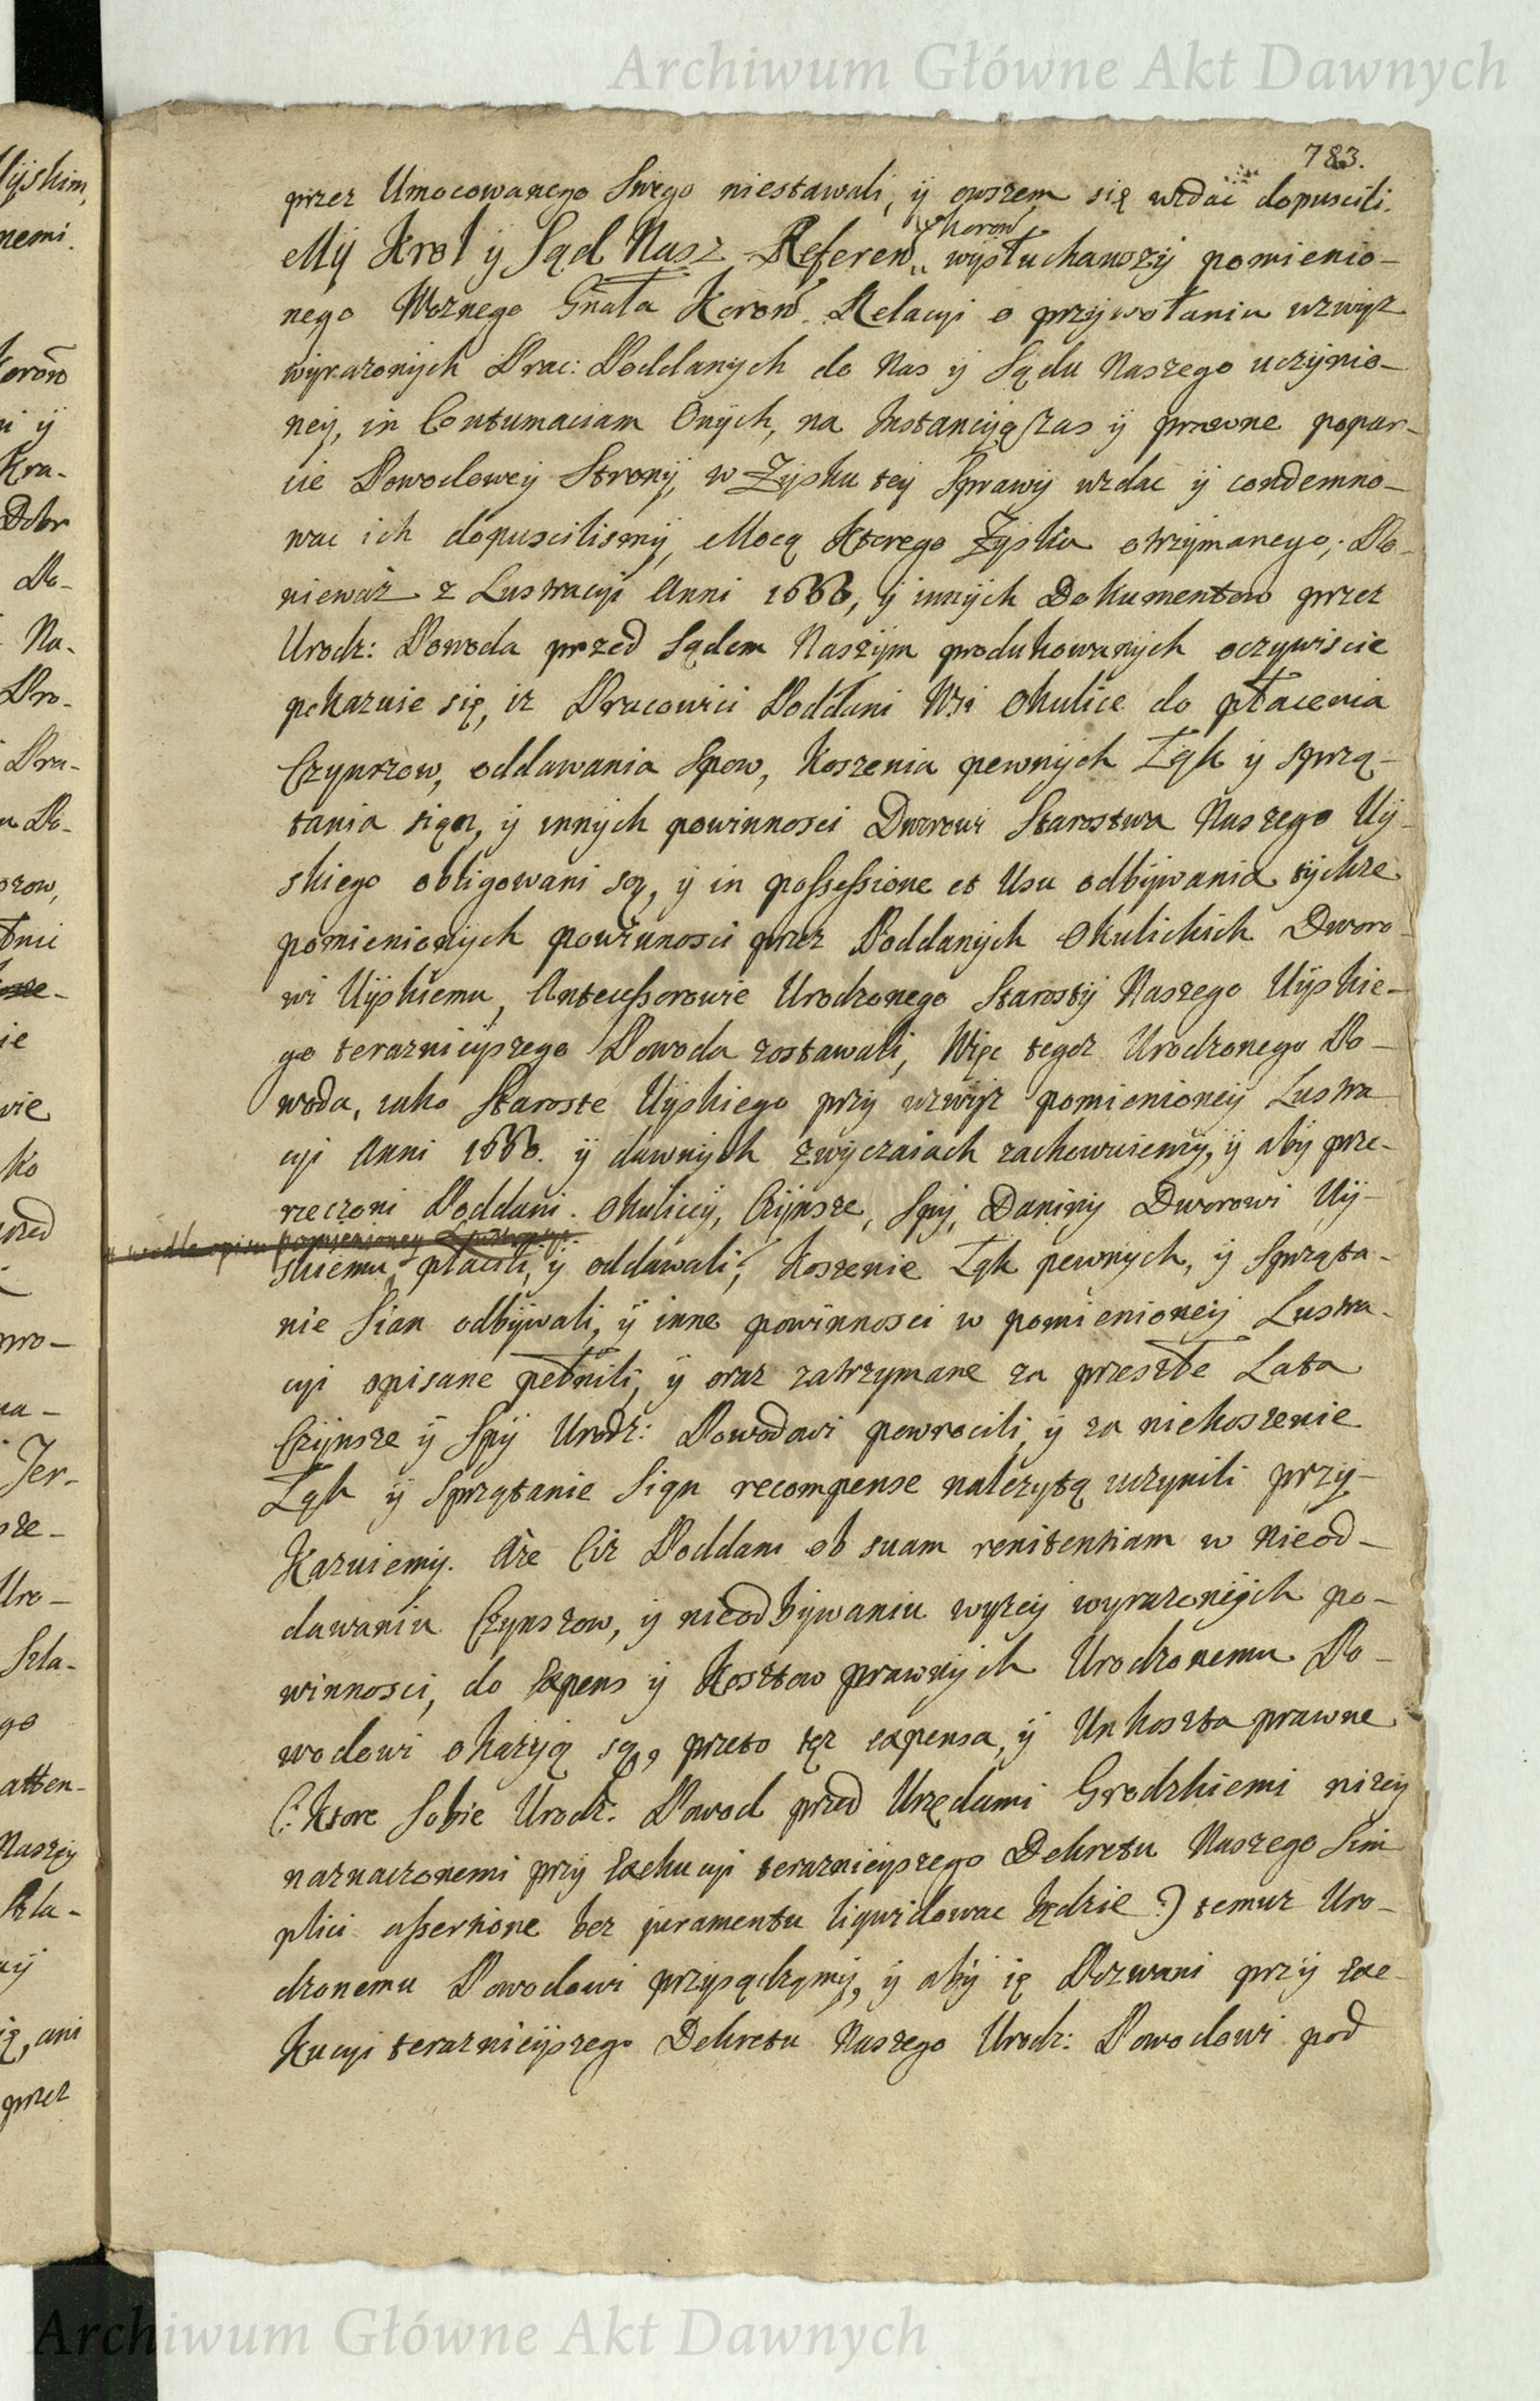 Archiwum Główne Akt Dawnych
783.
przez Umocowanego Swego niestawali, ÿ owszem się wzdać dopuscili.
Mÿ Krol ÿ Sąd Nasz Referen̄ Koron̄ wysłuchawszÿ pomienio-
nego Woznego Gnała Koron̄ Relacÿi o przÿwołaniu wzwÿz
wÿrazonÿch Prac: Poddanÿch do Nas ÿ Sądu Naszego uczÿnio-
neÿ, in Contumaciam Onÿch, na Instancÿą zas ÿ prawne popar-
cie Powodoweÿ Stronÿ, w Zÿsku teÿ Sprawÿ wzdac ÿ condemno-
wac ich dopuscilismÿ, Mocą Ktorego Zÿsku otrzÿmanego; Po-
niewaz z Lustracÿi Anni 1666, ÿ innÿch Dokumentow przez
Urodz: Powoda przed Sądem Naszÿm produkowanÿch oczÿwiscie
pokazuie się, iz Pracowici Poddani Wsi Okulice do płacenia
Czÿnszow, oddawania Spow, Koszenia pewnÿch Łąk ÿ sprzą-
tania sian, ÿ innÿch powinnosci Dworowi Starostwa Naszego Uÿ-
skiego obligowani są, ÿ in possessione et Usu odbÿwania tÿchze
pomienionÿch powinnosci przez Poddanÿch Okulickich Dworo-
wi Uÿskiemu, Antecessorowie Urodzonego Starostÿ Naszego Uÿskie-
go teraznieÿszego Powoda zostawali, Więc tegoz Urodzonego Po-
woda, iako Staroste Uÿskiego przÿ wzwÿz pomienioneÿ Lustra
cÿi Anni 1666. ÿ dawnÿch zwÿczaiach zachowuiemÿ, ÿ abÿ prze-
rzeczoni Poddani Okuliccÿ, Czÿnsze, Spÿ, Daninÿ Dworowi Uÿ-
wedle opisu pomienioney Lustracyi
skiemu płacili, ÿ oddawali, Koszenie Łąk pewnÿch, ÿ Sprząta-
nie Sian odbÿwali, ÿ inne powinnosci w pomienioneÿ Lustra-
cÿi opisane pełnili, ÿ oraz zatrzymane za przeszłe Lata
Czÿnsze ÿ Spÿ Urodz: Powodowi powrocili, ÿ za niekoszenie
Łąk ÿ Sprzątanie Sian recompense nalezytą uczynili przÿ-
Kazuiemÿ. Aże Ciz Poddani ob suam renitentiam w nieod-
dawaniu Czynszow, ÿ nieodbÿwaniu wyzeÿ wyrazonÿch po-
winnosci, do Expens ÿ Kosztow prawnÿch Urodzonemu Po-
wodowi okazÿą są, przeto tęz expensa, ÿ Unkoszta prawne
(: Ktore Sobie Urodz: Powod przed Urzędami Grodzkiemi nizeÿ
naznaczonemi przÿ Exekucÿi teraznieÿszego Dekretu Naszego Sim
plici assertione bez juramentu liquidowac będzie :) temuz Uro-
dzonemu Powodowi przÿsądzamÿ, ÿ abÿ ię Pozwani przÿ Exe-
kucÿi teraznieÿszego Dekretu Naszego Urodz: Powodowi pod
Archiwum Główne Akt Dawnych